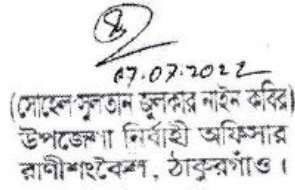 07.07.2022
(সোহেল সুলতান জুলকার নাইন কবির)
উপজেলা নির্বাহী অফিসার
রাণীশংকৈল, ঠাকুরগাঁও।